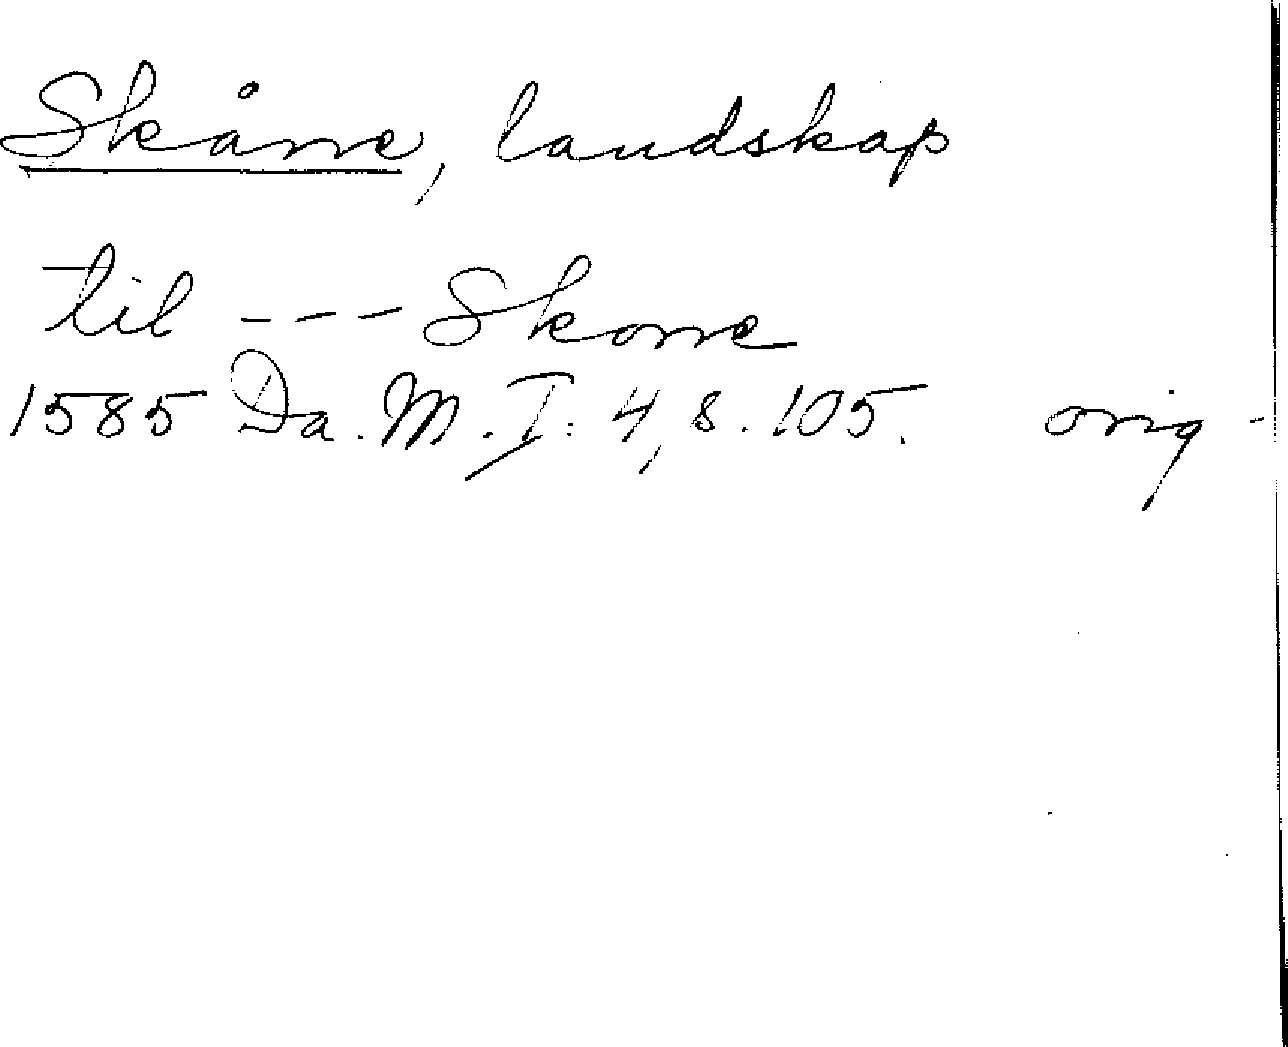 Skåne, landskap
til --- Skone
1585 Da. M. I: 4, s. 105. orig -